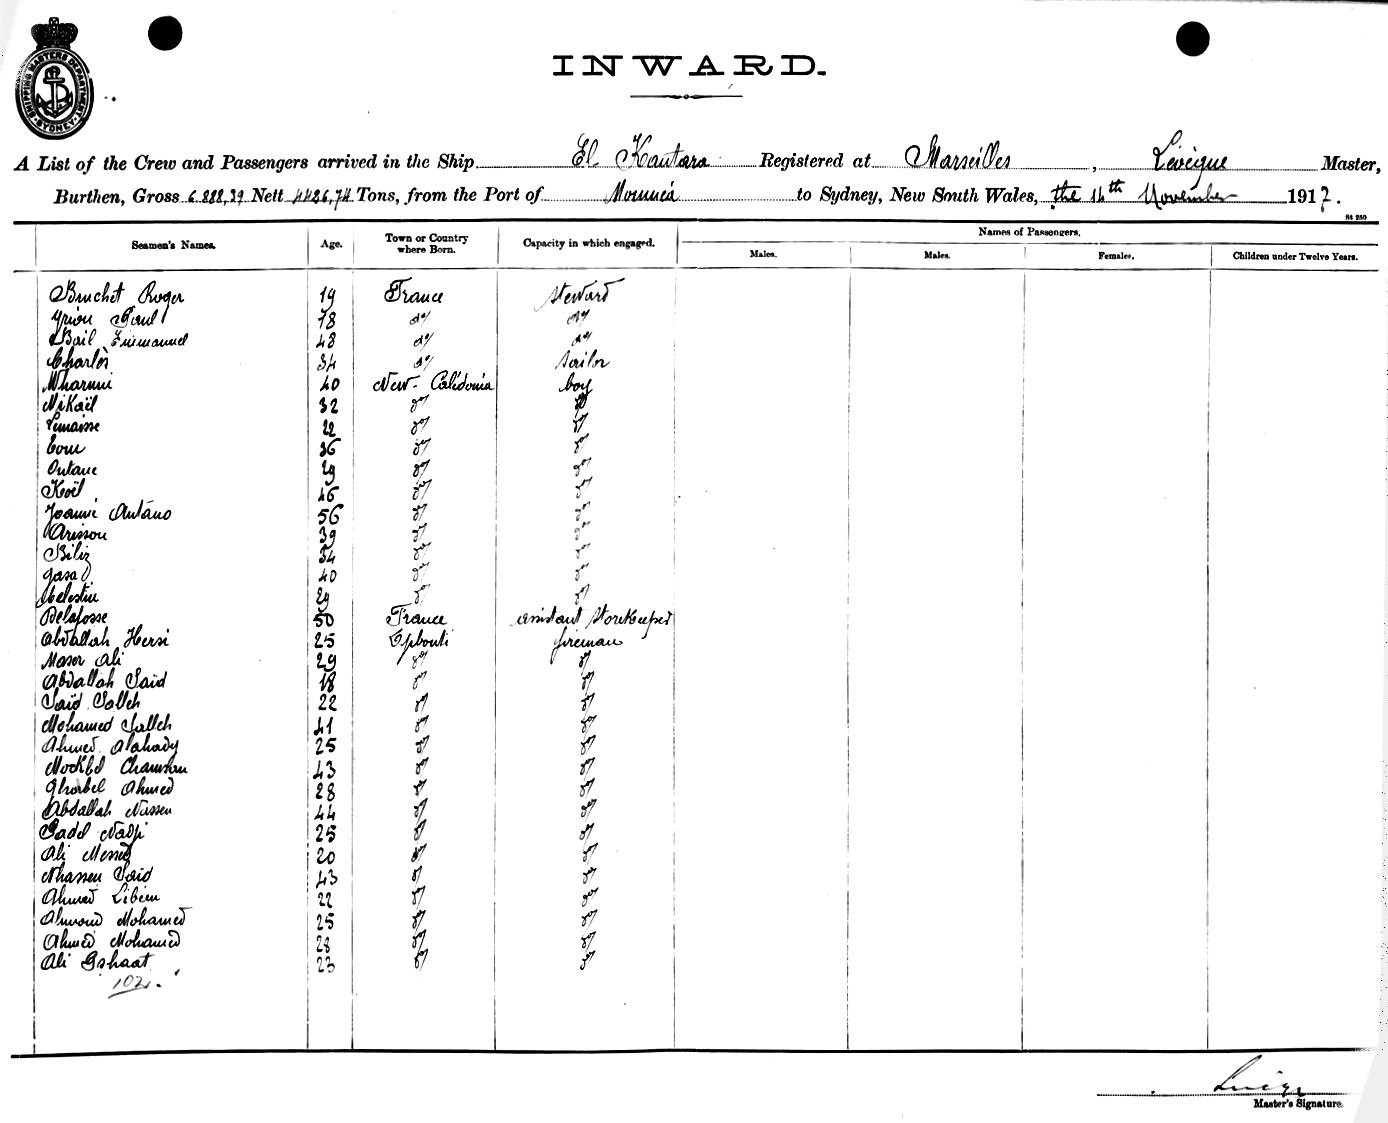 SHIPPING MASTERS DEPARTMENT
SYDNEY
INWARD.
A List of the Crew and Passengers arrived in the Ship El Kantara Registered at Marseilles, Lévèque Master,
Burthen, Gross 6.888,39 Nett 4426,74 Tons, from the Port of Nouméa to Sydney, New South Wales, the 14th November 1917.
St 250
Seamen's Names. Age. Town or Country where Born. Capacity in which engaged. Names of Passengers.
Males. Males. Females. Children under Twelve Years.
Bruchet Roger 19 France steward
Paul 18 do do
Bail Emmanuel 48 do do
Charles 34 do sailor
40 New-Calédonia boy
Mikaël 32 do do
Lemaisse 22 do do
36 do do
Outane 29 do do
Koël 46 do do
Joanni Antano 56 do do
Arisson 39 do do
Biliz 54 do do
40 do do
Celestin 29 do do
Delafosse 50 France assistant Storekeeper
Abdallah Hersi 25 Djibouti fireman
Naser Ali 29 do do
Abdallah Said 18 do do
Saïd Saleh 22 do do
Mohamed Salleh 41 do do
Ahmed Alahady 25 do do
Mockbel 43 do do
Ghorbel Ahmed 28 do do
Abdallah Nassen 44 do do
Nadji 25 do do
Ali 20 do do
Nhassen Said 43 do do
Ahmed Libien 22 do do
Mohamed 25 do do
Ahmed Mohamed 28 do do
Ali Gshaat 23 do do
102.
Master's Signature.